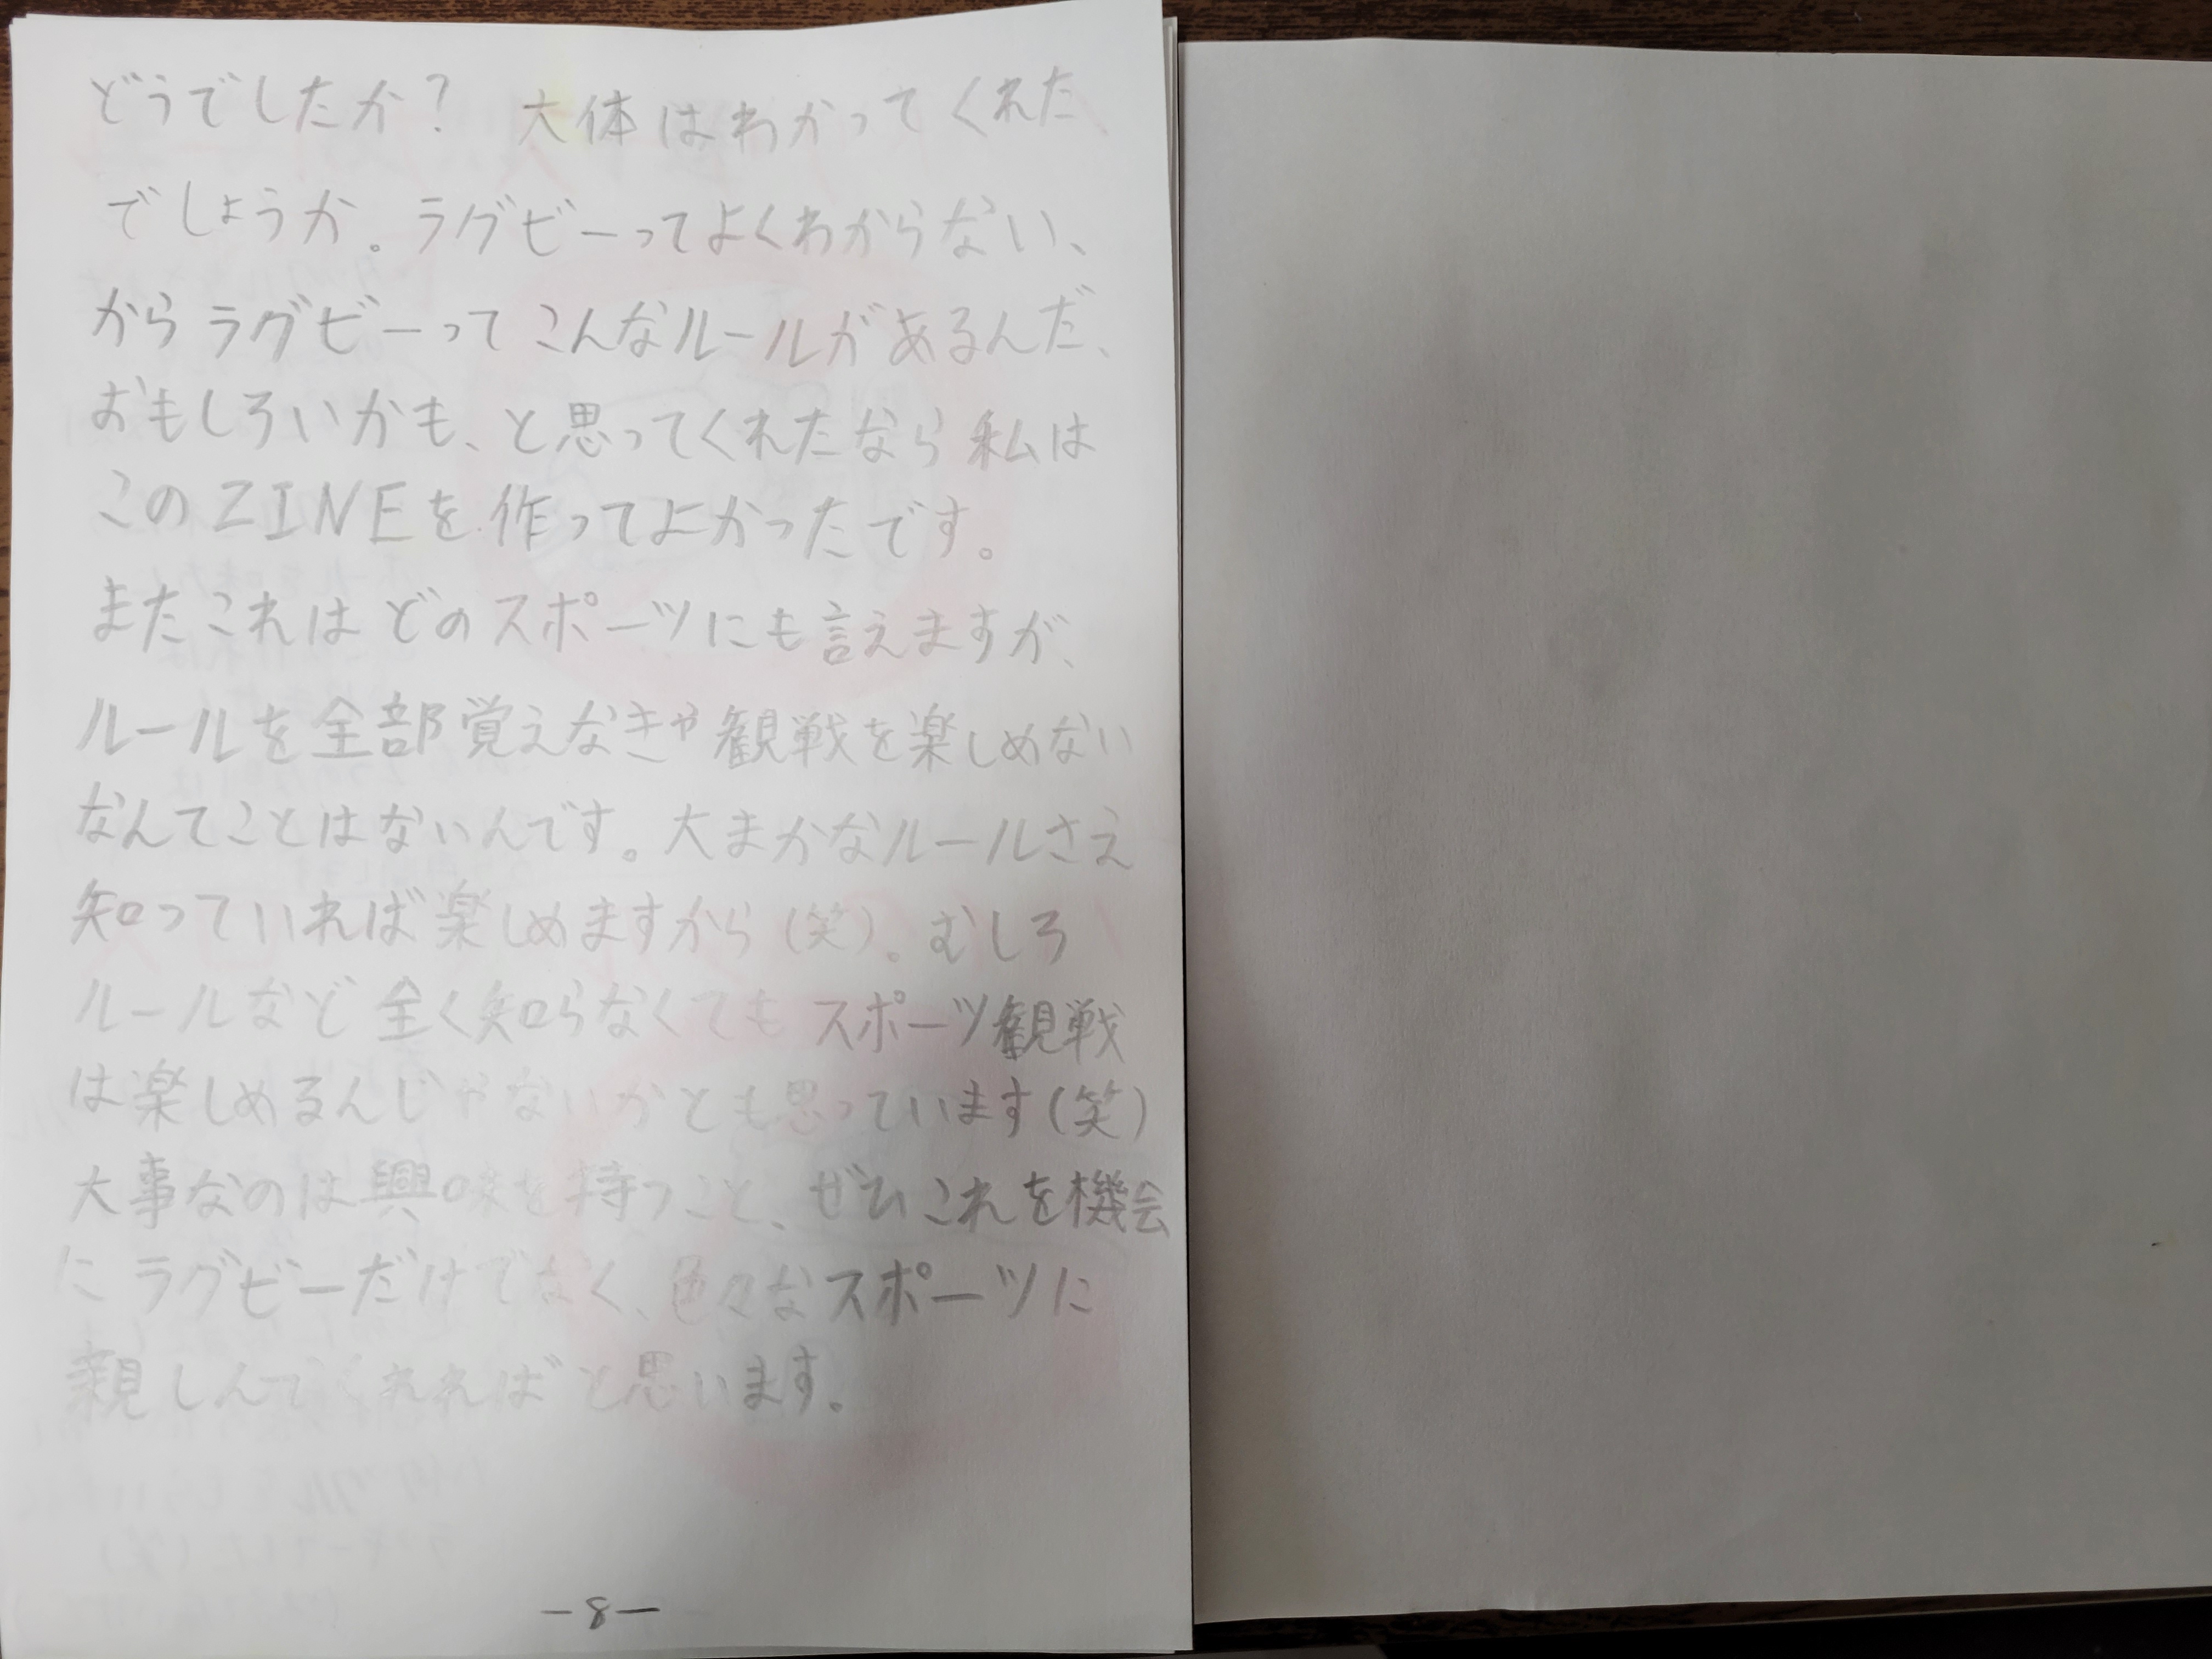 どうでしたか? 大体はわかってくれた、
でしょうか。ラグビーってよくわからない、
からラグビーってこんなルールがあるんだ、
おもしろいかも、と思ってくれたなら私は
このZINEを作ってよかったです。
またこれはどのスポーツにも言えますが、
ルールを全部覚えなきゃ観戦を楽しめない
なんてことはないんです。大まかなルールさえ
知っていれば楽しめますから(笑)。むしろ
ルールなど全く知らなくてもスポーツ観戦
は楽しめるんじゃないかとも思っています(笑)
大事なのは興味を持つこと、ぜひこれを機会
にラグビーだけでなく、色々なスポーツに
親しんでくれればと思います。
－8－